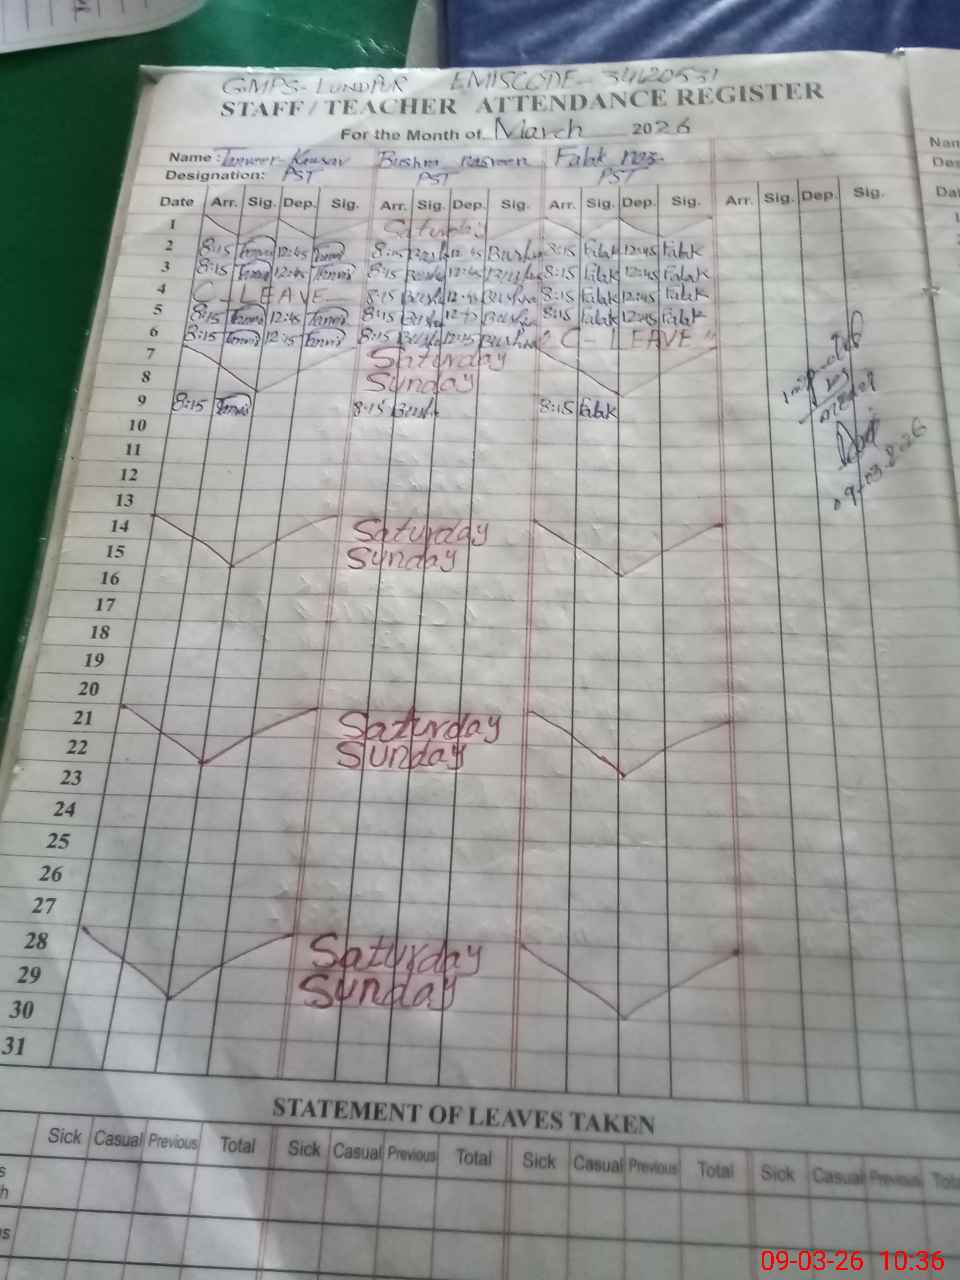 GMPS-LUNDPUR EMISCODE-34620531
STAFF/TEACHER ATTENDANCE REGISTER
For the Month of March 2026
Name: Tanveer Kausar Bushra nasreen Falak naz
Designation: PST PST PST
Date Arr. Sig. Dep. Sig. Arr. Sig. Dep. Sig. Arr. Sig. Dep. Sig. Arr. Sig. Dep. Sig.
1 Saturday
2 8:15 12:45 8:15 Bushra 12:45 Bushra 8:15 Falak 12:45 Falak
3 8:15 12:45 8:15 Bushra 12:45 Bushra 8:15 Falak 12:45 Falak
4 C-LEAVE 8:15 Bushra 12:45 Bushra 8:15 Falak 12:45 Falak
5 8:15 12:45 8:15 Bushra Bushra 8:15 Falak 12:45 Falak
6 8:15 12:45 8:15 Bushra 12:45 Bushra "C-LEAVE"
7 Saturday
8 Sunday
9 8:15 8:15 Bushra 8:15 Falak
10
11
12
13
14 Saturday
15 Sunday
16
17
18
19
20
21 Saturday
22 Sunday
23
24
25
26
27
28 Saturday
29 Sunday
30
31
09-03-2026
STATEMENT OF LEAVES TAKEN
Sick Casual Previous Total Sick Casual Previous Total Sick Casual Previous Total Sick Casual Previous
09-03-26 10:36